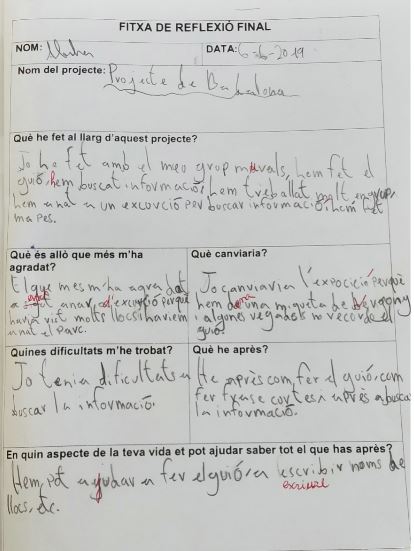 FITXA DE REFLEXIÓ FINAL
NOM: DATA: 6-6-2019
Nom del projecte: Projecte de Badalona
Què he fet al llarg d'aquest projecte?
Jo he fet amb el meu grup murals, hem fet el
guió, hem buscat informació, hem treballat molt en grup,
hem anat a un excurció per buscar informació, hem fet
mapes.
Què és allò que més m'ha
agradat?
El que mes m'ha agradat
anar d'excurció perquè
havia vist molts llocs i haviem
anat el parc.
Què canviaria?
Jo canviaria l'expocició perquè
hem dona una miqueta de vergony
i algunes vegades no recorde el
guió.
Quines dificultats m'he trobat?
Jo tenia dificultats a
buscar la informació.
Què he après?
He après com fer el guió, com
fer frase cortes a après a busca
la informació.
En quin aspecte de la teva vida et pot ajudar saber tot el que has après?
Hem pot ayudar a fer el guió, a escribir noms de
escriure
llocs, etc.